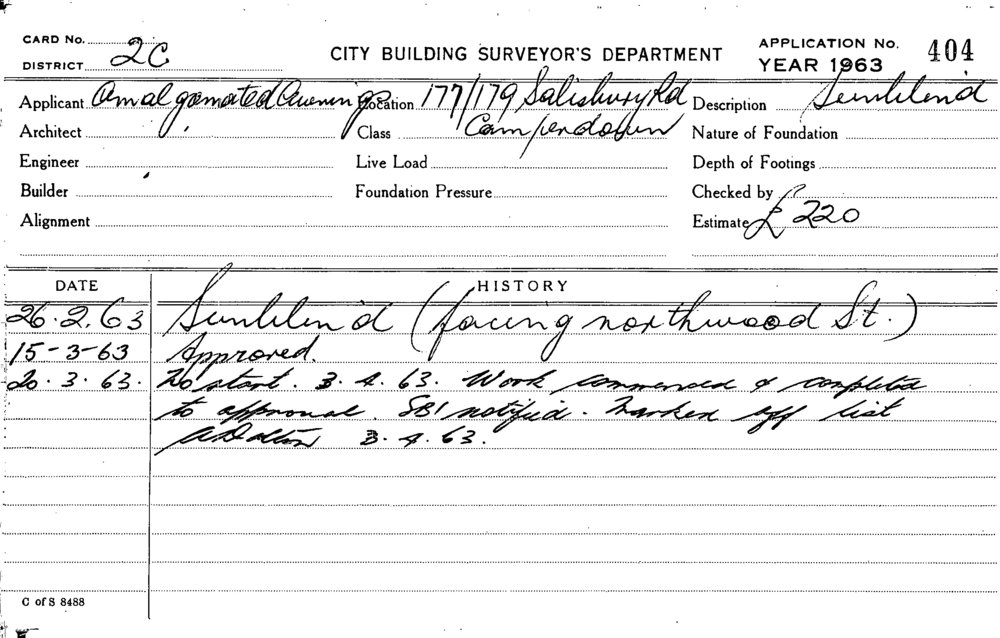 CARD No.
DISTRICT 2C
CITY BUILDING SURVEYOR'S DEPARTMENT
APPLICATION No. 404
YEAR 1963
Applicant Amalgamated Awnings Location 177/179 Salisbury Rd Description Sunblind
Architect Class Camperdown Nature of Foundation
Engineer Live Load Depth of Footings
Builder Foundation Pressure Checked by
Alignment Estimate £220
DATE HISTORY
26.2.63 Sunblind (facing northwood St.)
15-3-63 Approved.
20.3.63. No start. 3.4.63. Work commenced & completed
to approval. SBI notified. Marked off list
ADalton 3.4.63.
C of S 8488